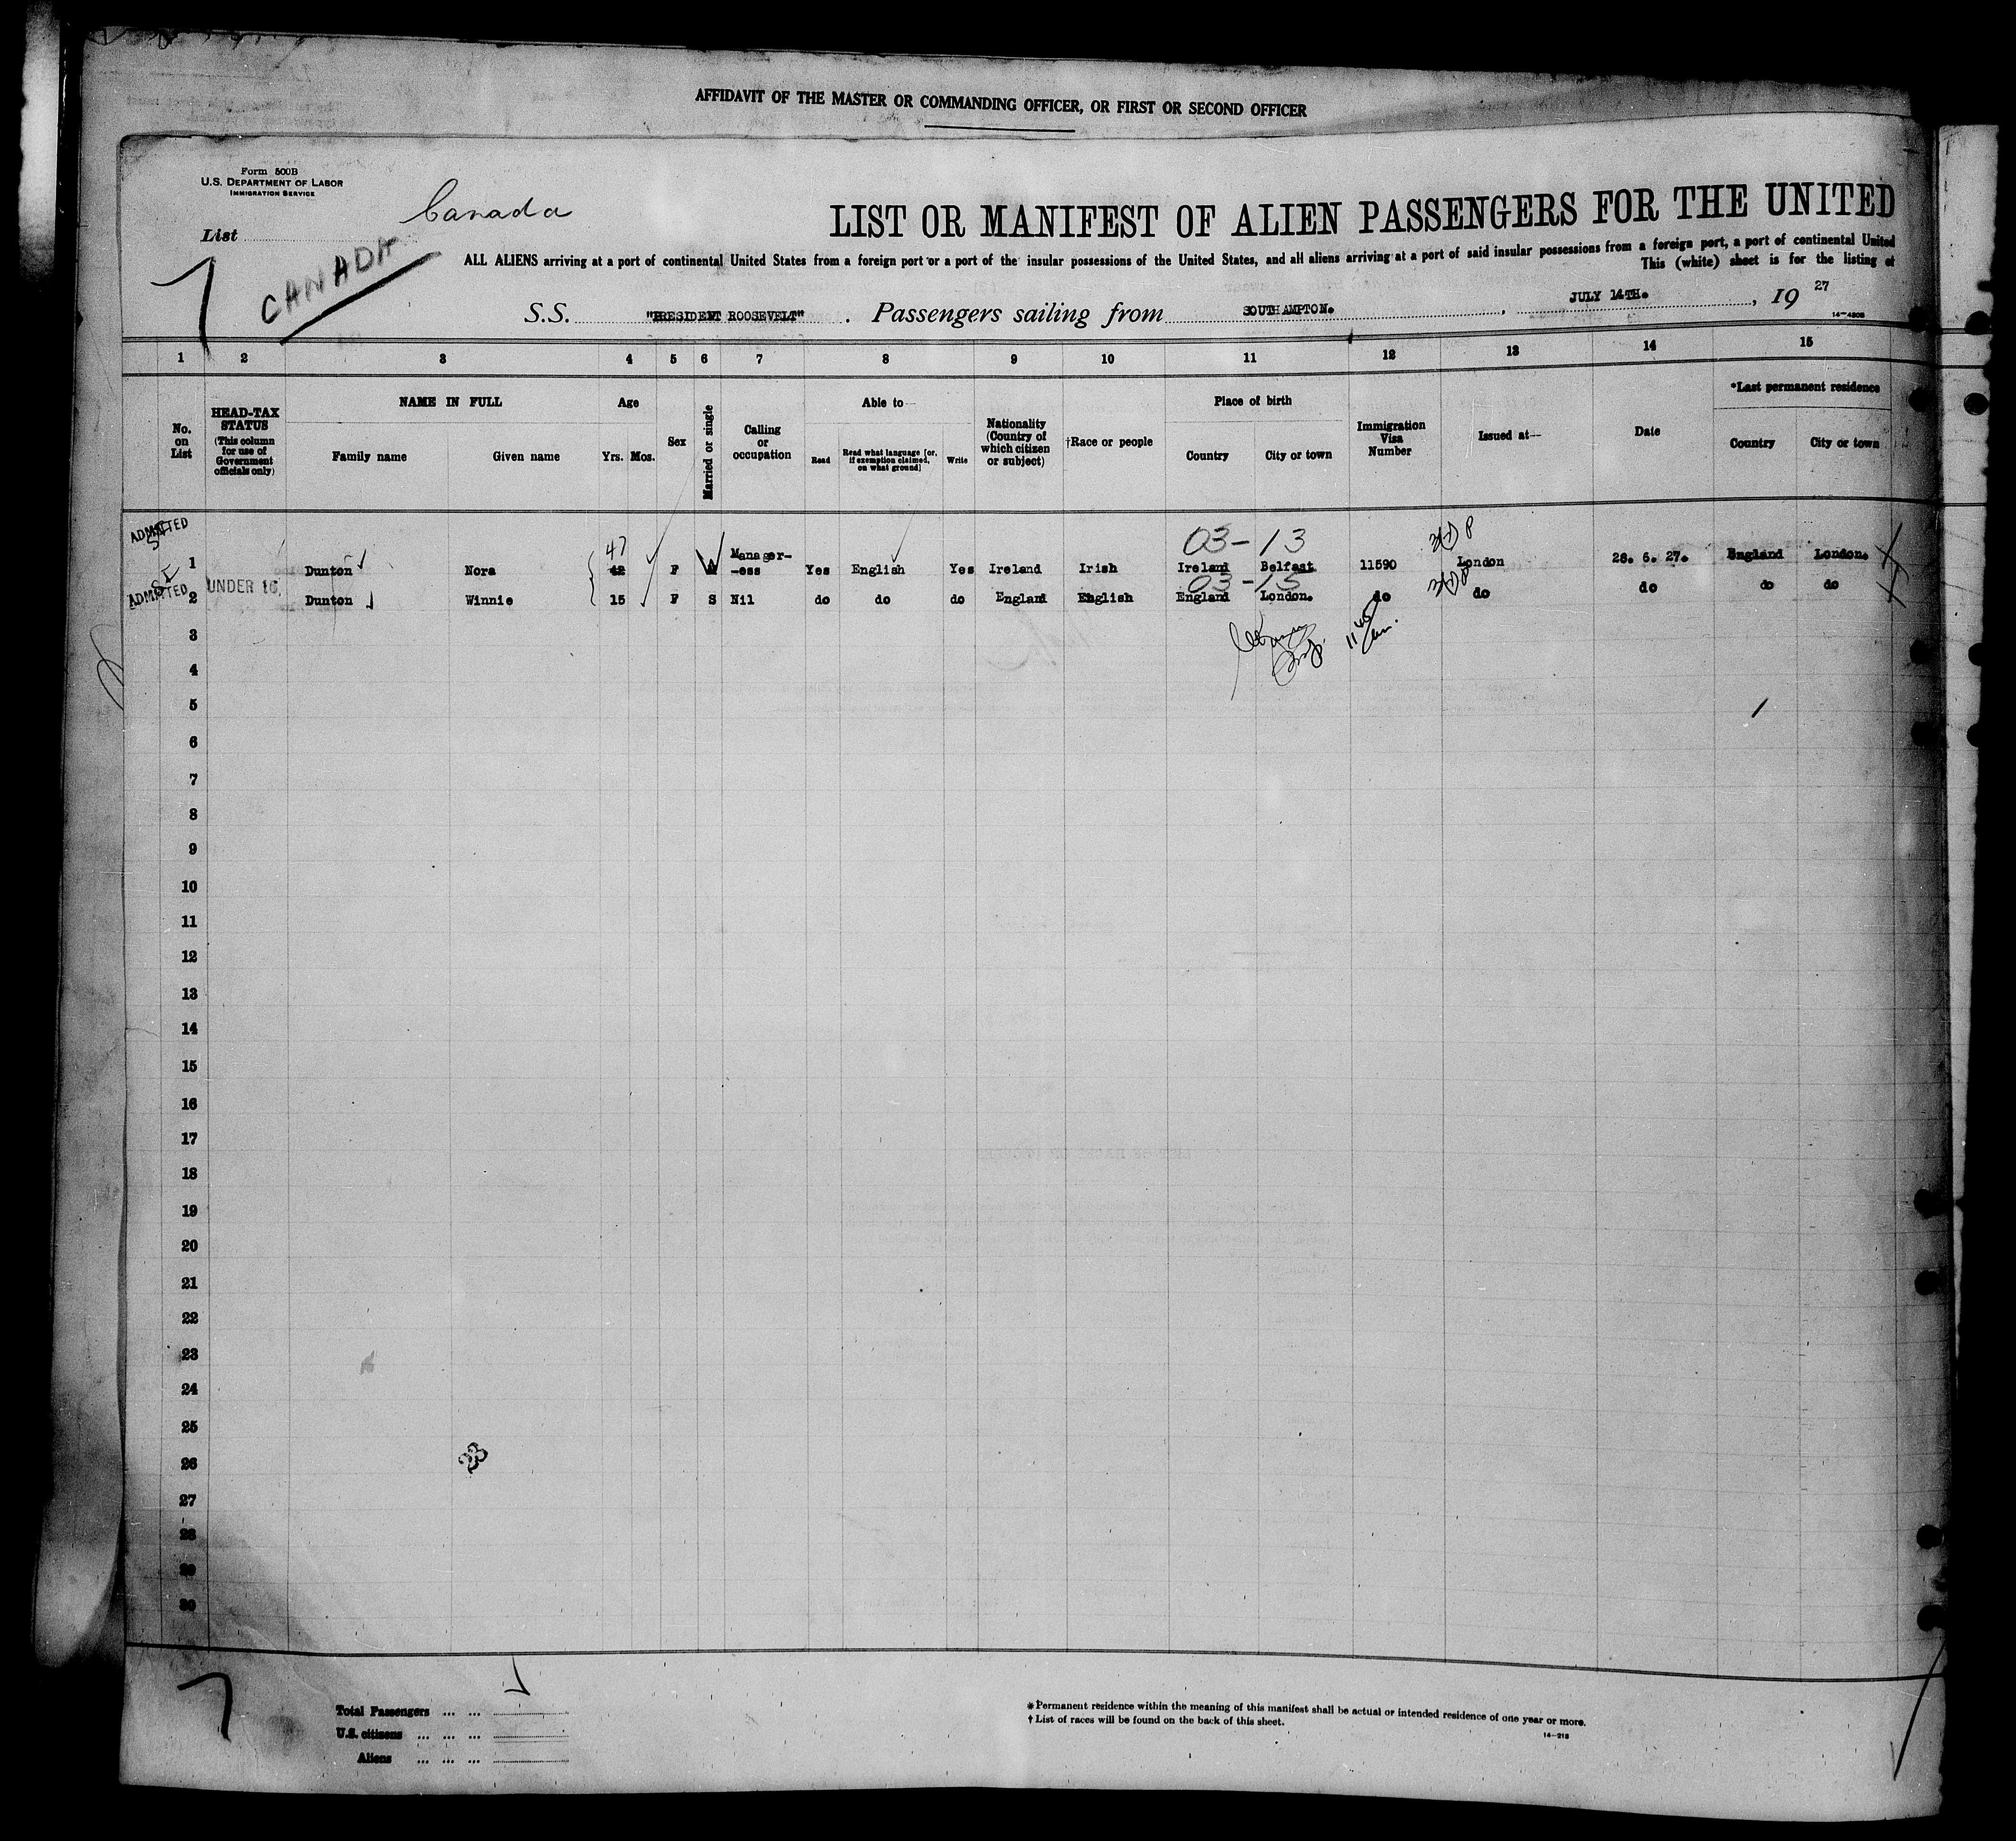 AFFIDAVIT OF THE MASTER OR COMMANDING OFFICER, OR FIRST OR SECOND OFFICER
Form 500B
U.S. DEPARTMENT OF LABOR
IMMIGRATION SERVICE
List
Canada
CANADA
7
LIST OR MANIFEST OF ALIEN PASSENGERS FOR THE UNITED
ALL ALIENS arriving at a port of continental United States from a foreign port or a port of the insular possessions of the United States, and all aliens arriving at a port of said insular possessions from a foreign port, a port of continental United
This (white) sheet is for the listing of
S.S. "PRESIDENT ROOSEVELT". Passengers sailing from SOUTHAMPTON. , JULY 14TH. , 19 27
14-4808
1 2 3 4 5 6 7 8 9 10 11 12 13 14 15
No. on List
HEAD-TAX STATUS (This column for use of Government officials only)
NAME IN FULL
Family name Given name
Age
Yrs. Mos.
Sex
Married or single
Calling or occupation
Able to—
Read
Read what language [or, if exemption claimed, on what ground]
Write
Nationality (Country of which citizen or subject)
†Race or people
Place of birth
Country City or town
Immigration Visa Number
Issued at—
Date
*Last permanent residence
Country City or town
ADMITTED
47 03-13
1 Dunton Nora 42 F Manager-
-ess Yes English Yes Ireland Irish Ireland Belfast 11590 London 28. 6. 27. England London.
ADMITTED SI
UNDER 16, 03-15
2 Dunton Winnie 15 F S Nil do do do England English England London. do do do do do
3
4
5
6
7
8
9
10
11
12
13
14
15
16
17
18
19
20
21
22
23
24
25
26
27
28
29
30
7
Total Passengers ... ...
U.S. citizens ... ... ...
Aliens ... ... ...
* Permanent residence within the meaning of this manifest shall be actual or intended residence of one year or more.
† List of races will be found on the back of this sheet.
14-218